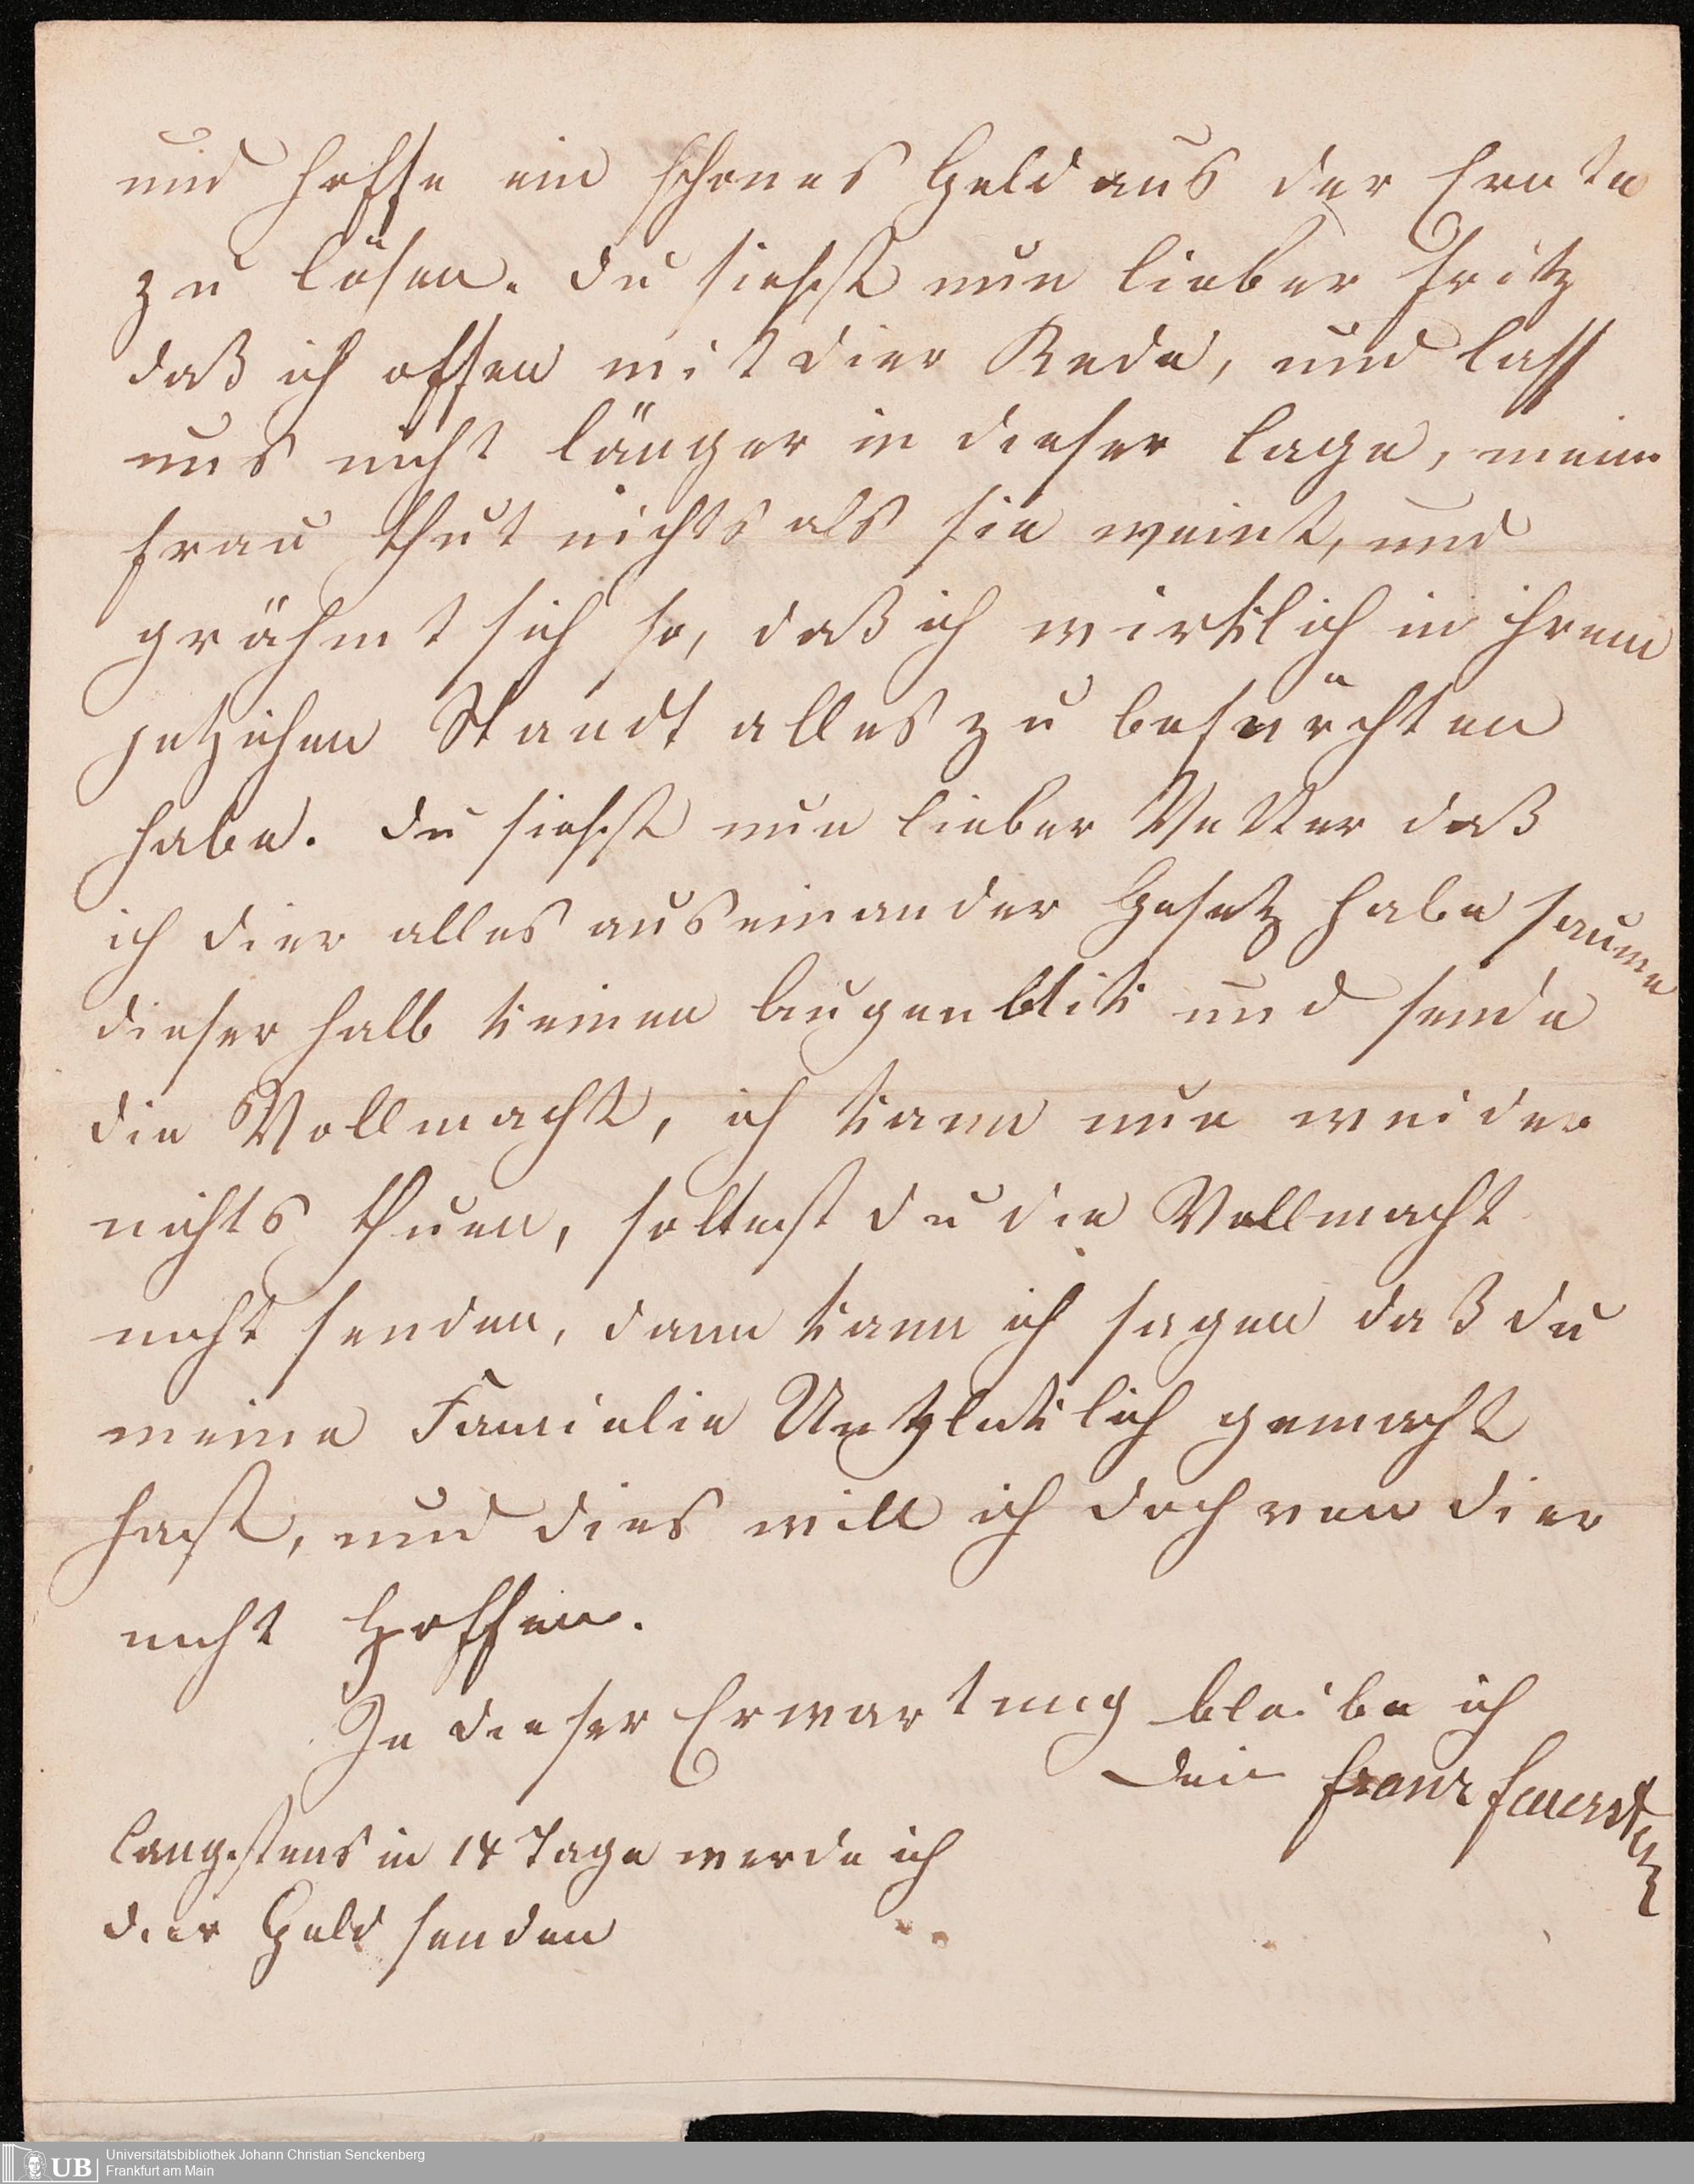 und hoffe ein schönes Geld aus der Ernte
zu lösen. du siehst nun lieber Fritz
daß ich offen mit dier Rede, und lass
uns nicht länger in dieser Lage, meine
Frau thut nichts als sie weint, und
grähmt sich so, daß ich wirklich in ihrem
jetzichen Standt alles zu befürchten
habe. du siehst nun lieber Vetter daß
ich dier alles auseinander Gesetz habe säume
dieser halb keinen Augenblik und sende
die Vollmacht, ich kann nun weider
nichts thuen, soltest du die Vollmacht
nicht senden, dann kann ich sagen daß du
meine Famielie gemacht
hast, und dies will ich doch von dier
nicht Hoffen.
In dieser Erwartung bleibe ich
dein Franz Feuerstein
langstens in 14 Tage werde ich
dier Geld senden
UB
Universitätsbibliothek Johann Christian Senckenberg
Frankfurt am Main